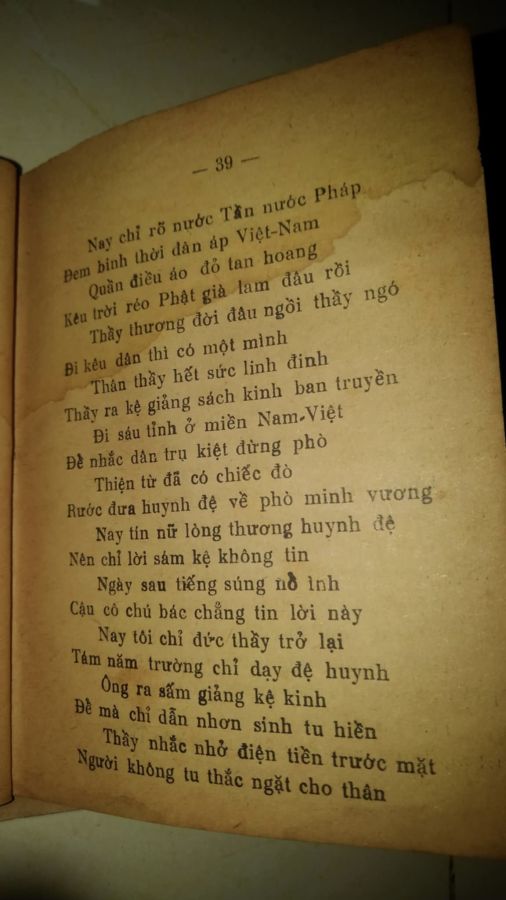 — 39 —
Nay chỉ rõ nước Tần nước Pháp
Đem binh thời dân áp Việt-Nam
Quần điều áo đỏ tan hoang
Kêu trời réo Phật già lam đâu rồi
Thầy thương đời đâu ngồi thầy ngó
Đi kêu dân thì có một mình
Thân thầy hết sức linh đinh
Thầy ra kệ giảng sách kinh ban truyền
Đi sáu tỉnh ở miền Nam-Việt
Đề nhắc dân trụ kiệt đừng phò
Thiện từ đã có chiếc đò
Rước đưa huynh đệ về phò minh vương
Nay tín nữ lòng thương huynh đệ
Nên chỉ lời sám kệ không tin
Ngày sau tiếng súng nổ ình
Cậu cô chú bác chẳng tin lời này
Nay tôi chỉ đức thầy trở lại
Tám năm trường chỉ dạy đệ huynh
Ông ra sấm giảng kệ kinh
Đề mà chỉ dẫn nhơn sinh tu hiền
Thầy nhắc nhở điện tiền trước mặt
Người không tu thắc ngặt cho thân